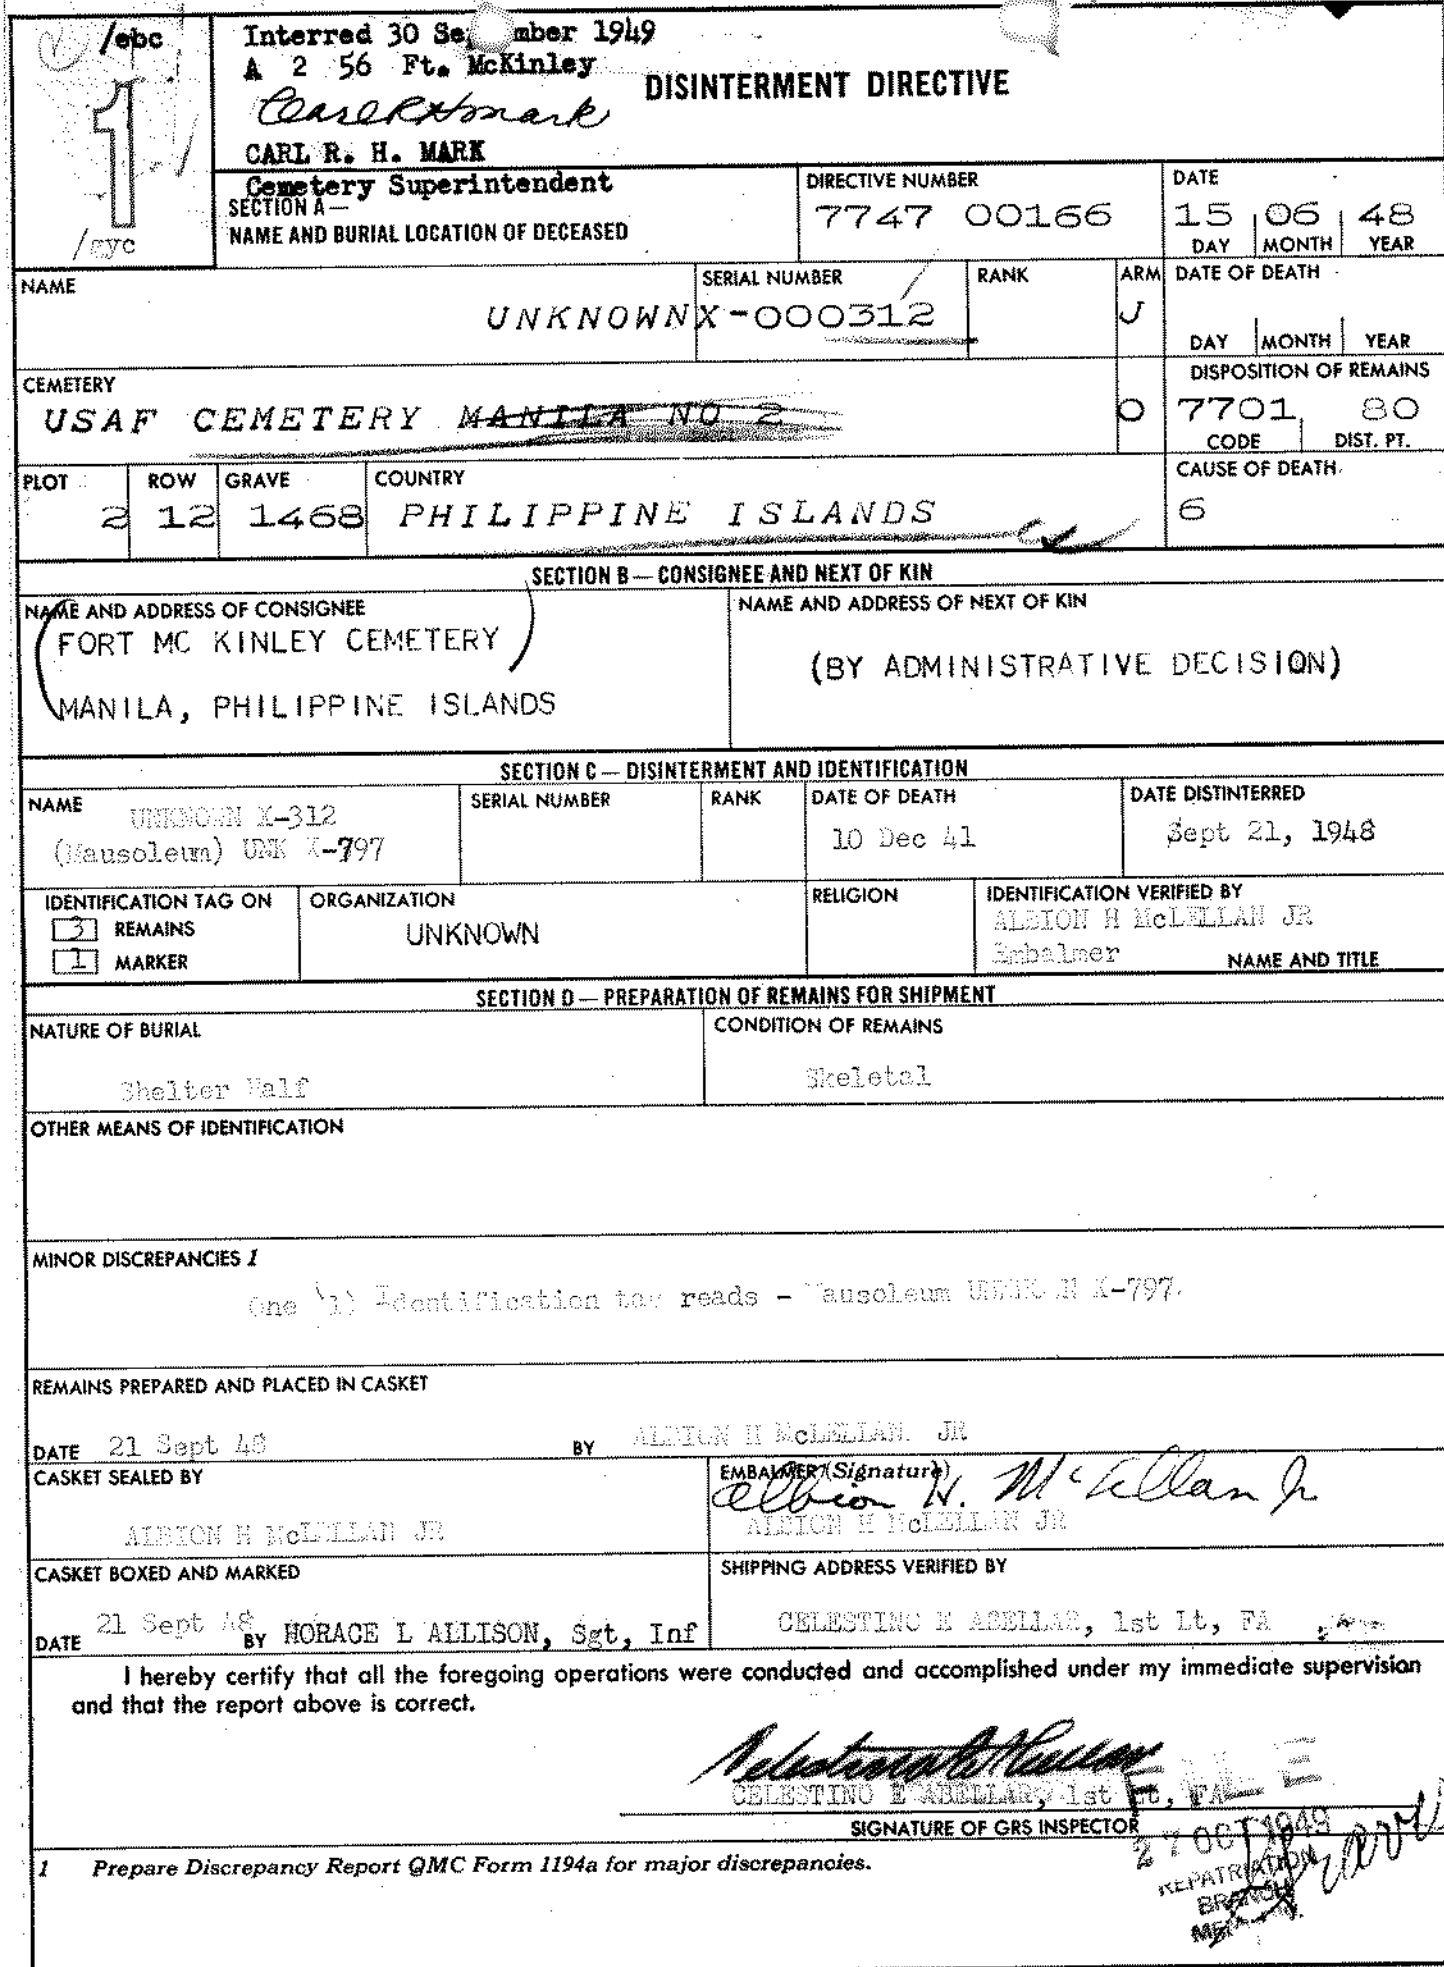 /ebc
Interred 30 Se mber 1949
A 2 56 Ft. McKinley
DISINTERMENT DIRECTIVE
CARL R. H. MARK
Cemetery Superintendent
1
/gyc
SECTION A—
NAME AND BURIAL LOCATION OF DECEASED
DIRECTIVE NUMBER
7747 00166
DATE
15 06 48
DAY MONTH YEAR
NAME
UNKNOWN
SERIAL NUMBER
X-000312
RANK
ARM
J
DATE OF DEATH
DAY MONTH YEAR
CEMETERY
USAF CEMETERY MANILA NO 2
O
DISPOSITION OF REMAINS
7701 80
CODE DIST. PT.
PLOT ROW GRAVE COUNTRY
2 12 1468 PHILIPPINE ISLANDS
CAUSE OF DEATH
6
SECTION B — CONSIGNEE AND NEXT OF KIN
NAME AND ADDRESS OF CONSIGNEE
FORT MC KINLEY CEMETERY
MANILA, PHILIPPINE ISLANDS
NAME AND ADDRESS OF NEXT OF KIN
(BY ADMINISTRATIVE DECISION)
SECTION C — DISINTERMENT AND IDENTIFICATION
NAME
UNKNOWN X-312
(Mausoleum) UNK X-797
SERIAL NUMBER
RANK
DATE OF DEATH
10 Dec 41
DATE DISTINTERRED
Sept 21, 1948
IDENTIFICATION TAG ON
3 REMAINS
1 MARKER
ORGANIZATION
UNKNOWN
RELIGION
IDENTIFICATION VERIFIED BY
ALBION H McLELLAN JR
Embalmer
NAME AND TITLE
SECTION D — PREPARATION OF REMAINS FOR SHIPMENT
NATURE OF BURIAL
Shelter Half
CONDITION OF REMAINS
Skeletal
OTHER MEANS OF IDENTIFICATION
MINOR DISCREPANCIES 1
One (1) Identification tag reads - Mausoleum UNKNOWN X-797.
REMAINS PREPARED AND PLACED IN CASKET
DATE 21 Sept 48 BY ALBION H McLELLAN JR
CASKET SEALED BY
ALBION H McLELLAN JR
EMBALMER (Signature)
Albion H. McLellan Jr
ALBION H McLELLAN JR
CASKET BOXED AND MARKED
DATE 21 Sept 48 BY HORACE L ALLISON, Sgt, Inf
SHIPPING ADDRESS VERIFIED BY
CELESTINO E ABELLAR, 1st Lt, FA
I hereby certify that all the foregoing operations were conducted and accomplished under my immediate supervision
and that the report above is correct.
CELESTINO E ABELLAR, 1st Lt, FA
SIGNATURE OF GRS INSPECTOR
FILE
27 OCT 1949
REPATRIATION
BRANCH
1 Prepare Discrepancy Report QMC Form 1194a for major discrepancies.